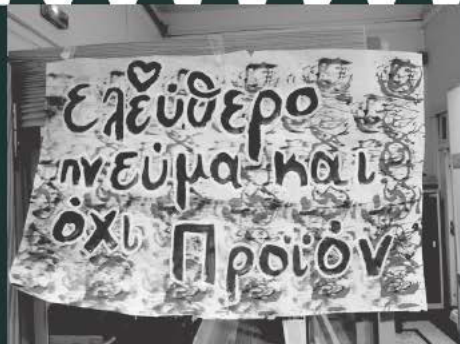 Ελεύθερο
πνεύμα και
όχι Προϊόν